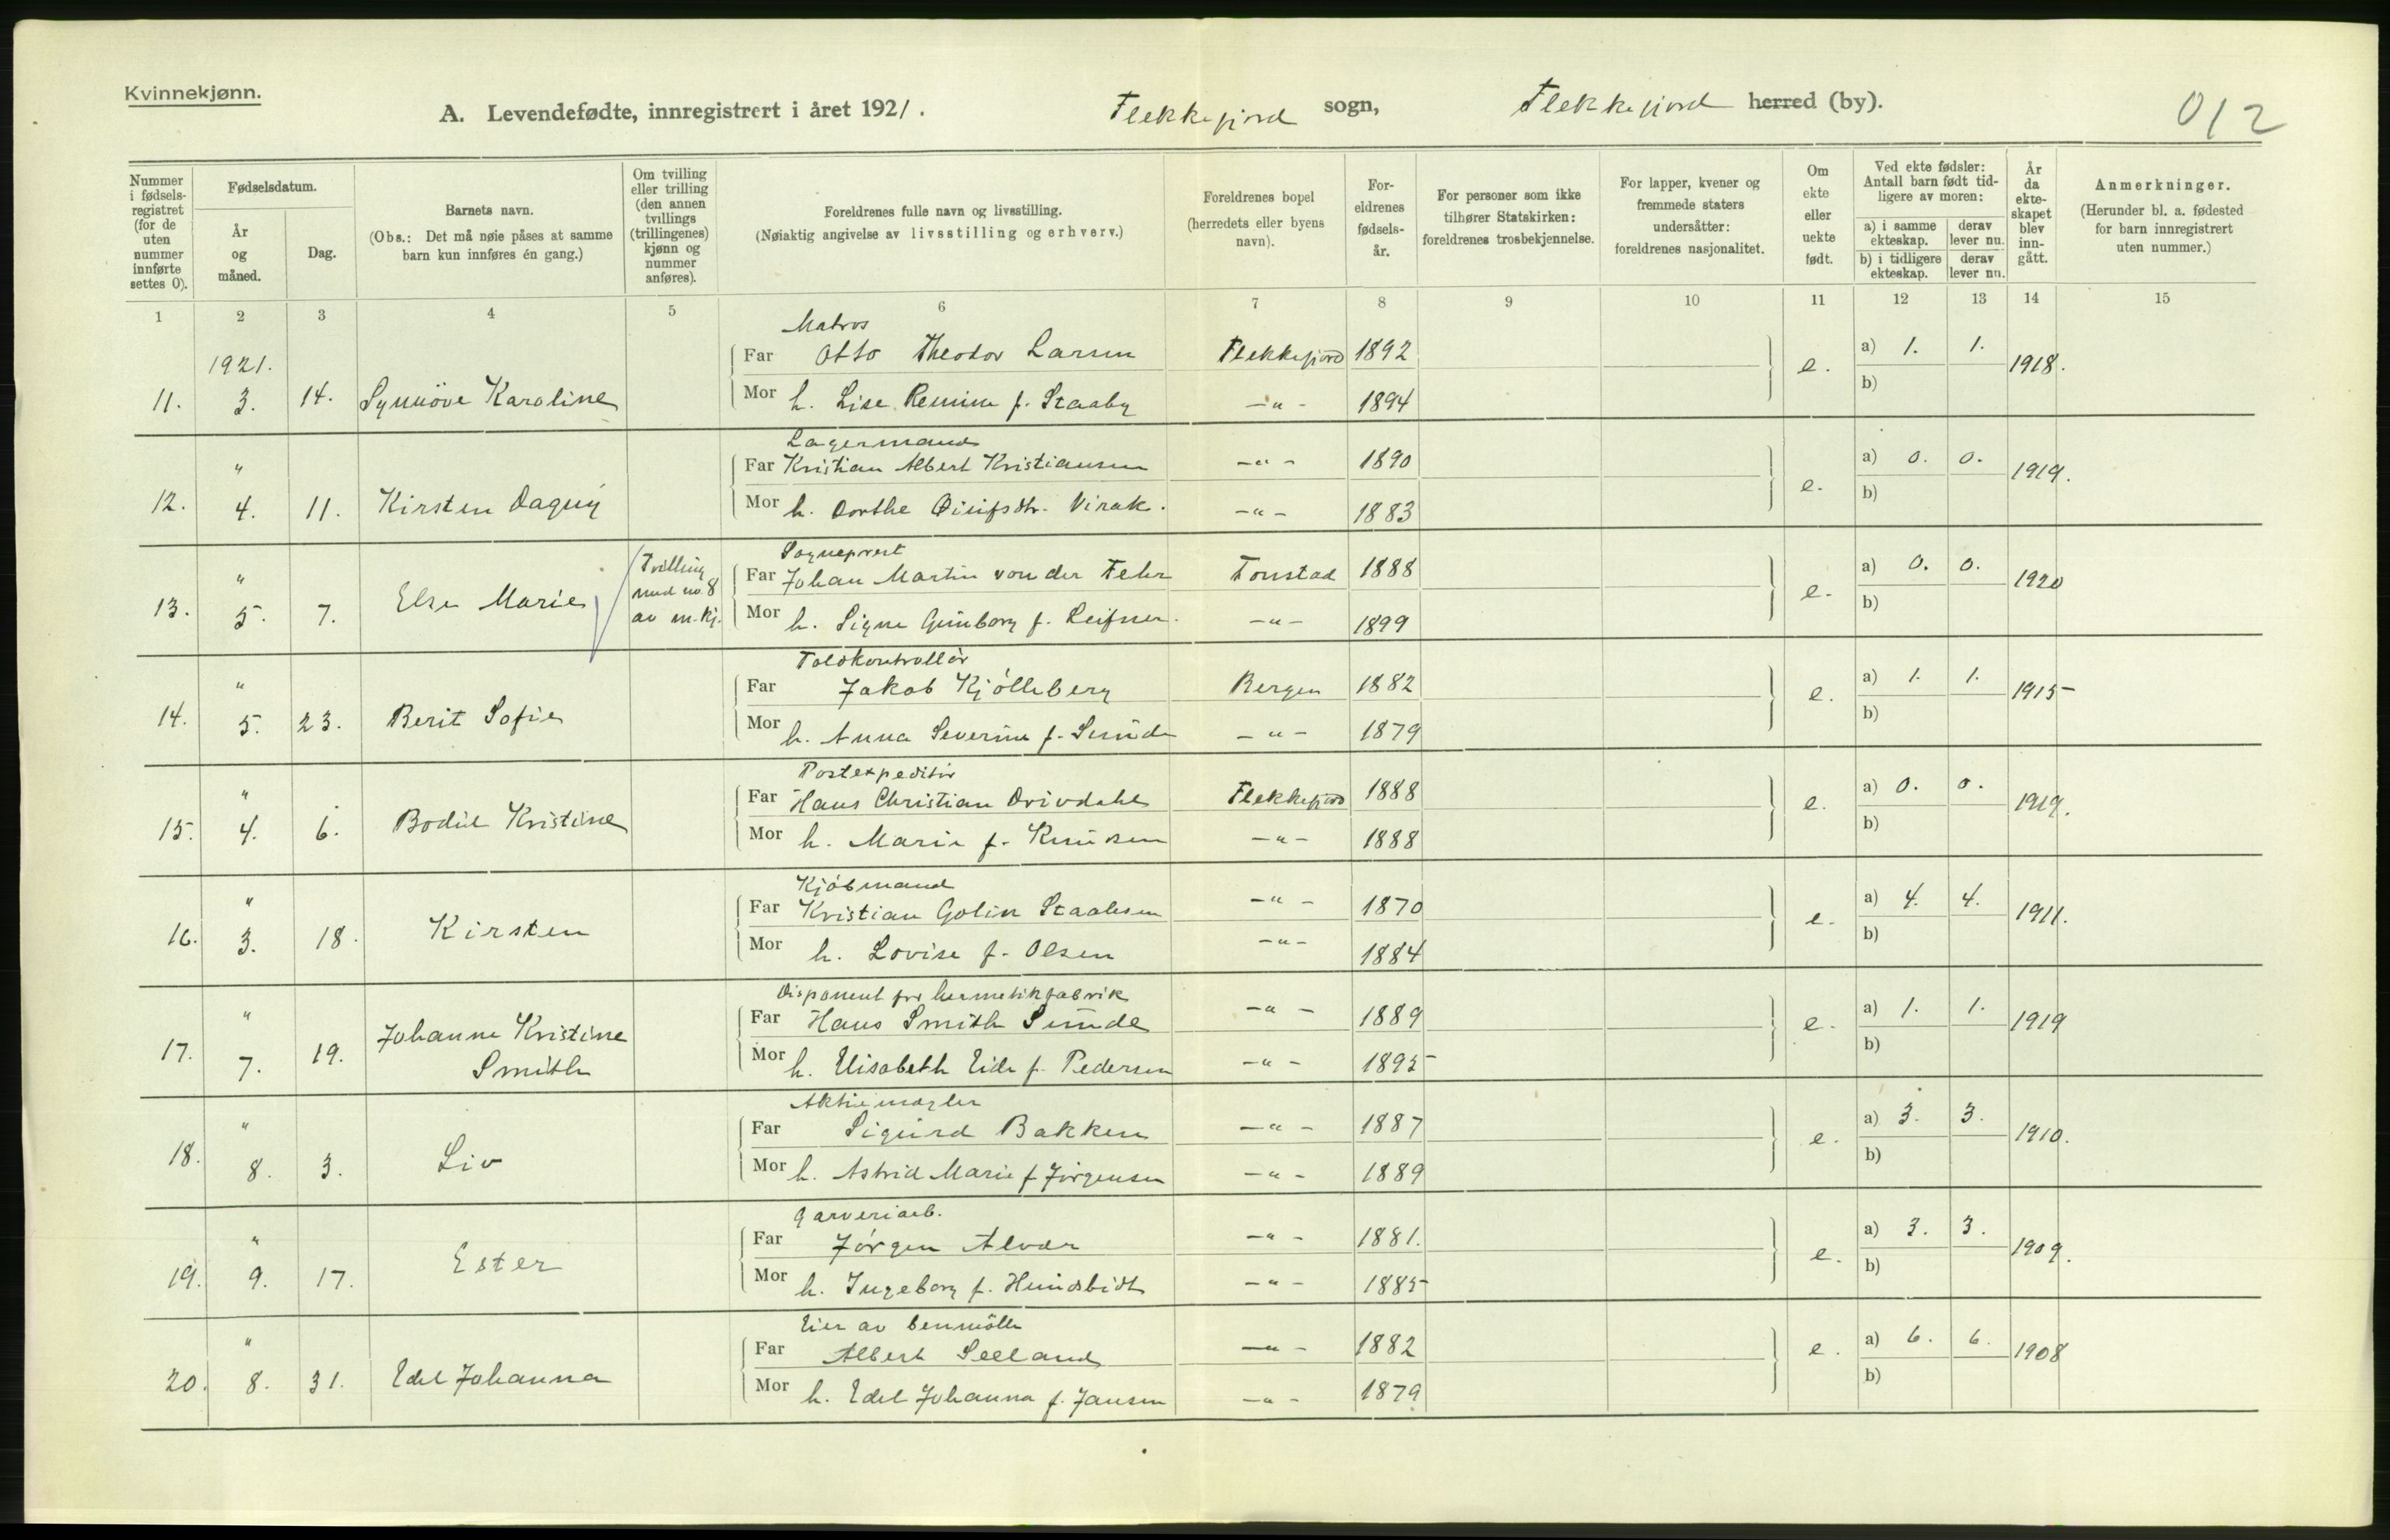 Kvinnekjønn.
A. Levendefødte, innregistrert i året 1921. Flekkefjord sogn, Flekkefjord herred (by).
012
Nummer i fødselsregistret (for de uten nummer innførte settes 0).
Fødselsdatum.
År og måned.
Dag.
Barnets navn.
(Obs.: Det må nøie påses at samme barn kun innføres én gang.)
Om tvilling eller trilling (den annen tvillings (trillingenes) kjønn og nummer anføres).
Foreldrenes fulle navn og livsstilling.
(Nøiaktig angivelse av livsstilling og erhverv.)
Foreldrenes bopel (herredets eller byens navn).
Foreldrenes fødselsår.
For personer som ikke tilhører Statskirken: foreldrenes trosbekjennelse.
For lapper, kvener og fremmede staters undersåtter: foreldrenes nasjonalitet.
Om ekte eller uekte født.
Ved ekte fødsler: Antall barn født tidligere av moren:
a) i samme ekteskap. derav lever nu.
b) i tidligere ekteskap. derav lever nu.
År da ekteskapet blev inngått.
Anmerkninger.
(Herunder bl. a. fødested for barn innregistrert uten nummer.)
1 2 3 4 5 6 7 8 9 10 11 12 13 14 15
Matros
1921. Far Otto Theodor Larsen Flekkefjord 1892 e. a) 1. 1. 1918.
11. 3. 14. Synnöve Karoline Mor h. Lise f. Staaby -"- 1894 b)
Lagermand
" Far Kristian Albert Kristiansen -"- 1890 a) 0. 0. 1919.
12. 4. 11. Kirsten Dagny Mor h. Dorthe Virak. -"- 1883 e. b)
Sogneprest
" Tvilling med no. 8 av m.kj. Far Johan Martin von der Fehr Tonstad 1888 a) 0. 0. 1920
13. 5. 7. Else Marie Mor h. Signe Gunborg f. -"- 1899 e. b)
Toldkontrollör
" Far Jakob Kjölleberg Bergen 1882 a) 1. 1. 1915
14. 5. 23. Berit Sofie Mor h. Anna Severine f. Sunde -"- 1879 e. b)
Postexpeditör
" Far Hans Christian Drivdahl Flekkefjord 1888 a) 0. 0. 1919.
15. 4. 6. Bodil Kristine Mor h. Marie f. Knudsen -"- 1888 e. b)
Kjöbmand
" Far Kristian Golin Staalesen -"- 1870 a) 4. 4. 1911.
16. 3. 18. Kirsten Mor h. Lovise f. Olsen -"- 1884 e. b)
Disponent for hermetikfabrik
" Far Hans Smith Sunde -"- 1889 a) 1. 1. 1919
17. 7. 19. Johanne Kristine Smith Mor h. Elisabeth Eide f. Pedersen -"- 1895 e. b)
Aktiemægler
" Far Sigurd Bakken -"- 1887 a) 3. 3. 1910.
18. 8. 3. Liv Mor h. Astrid Marie f. Jörgensen -"- 1889 e. b)
Garveriarb.
" Far Jörgen Alvær -"- 1881. a) 3. 3. 1909.
19. 9. 17. Ester Mor h. Ingeborg f. -"- 1885 e. b)
Eier av benmölle
" Far Albert Seeland -"- 1882 e. a) 6. 6. 1908
20. 8. 31. Edel Johanna Mor h. Edel Johanna f. Jansen -"- 1879 b)